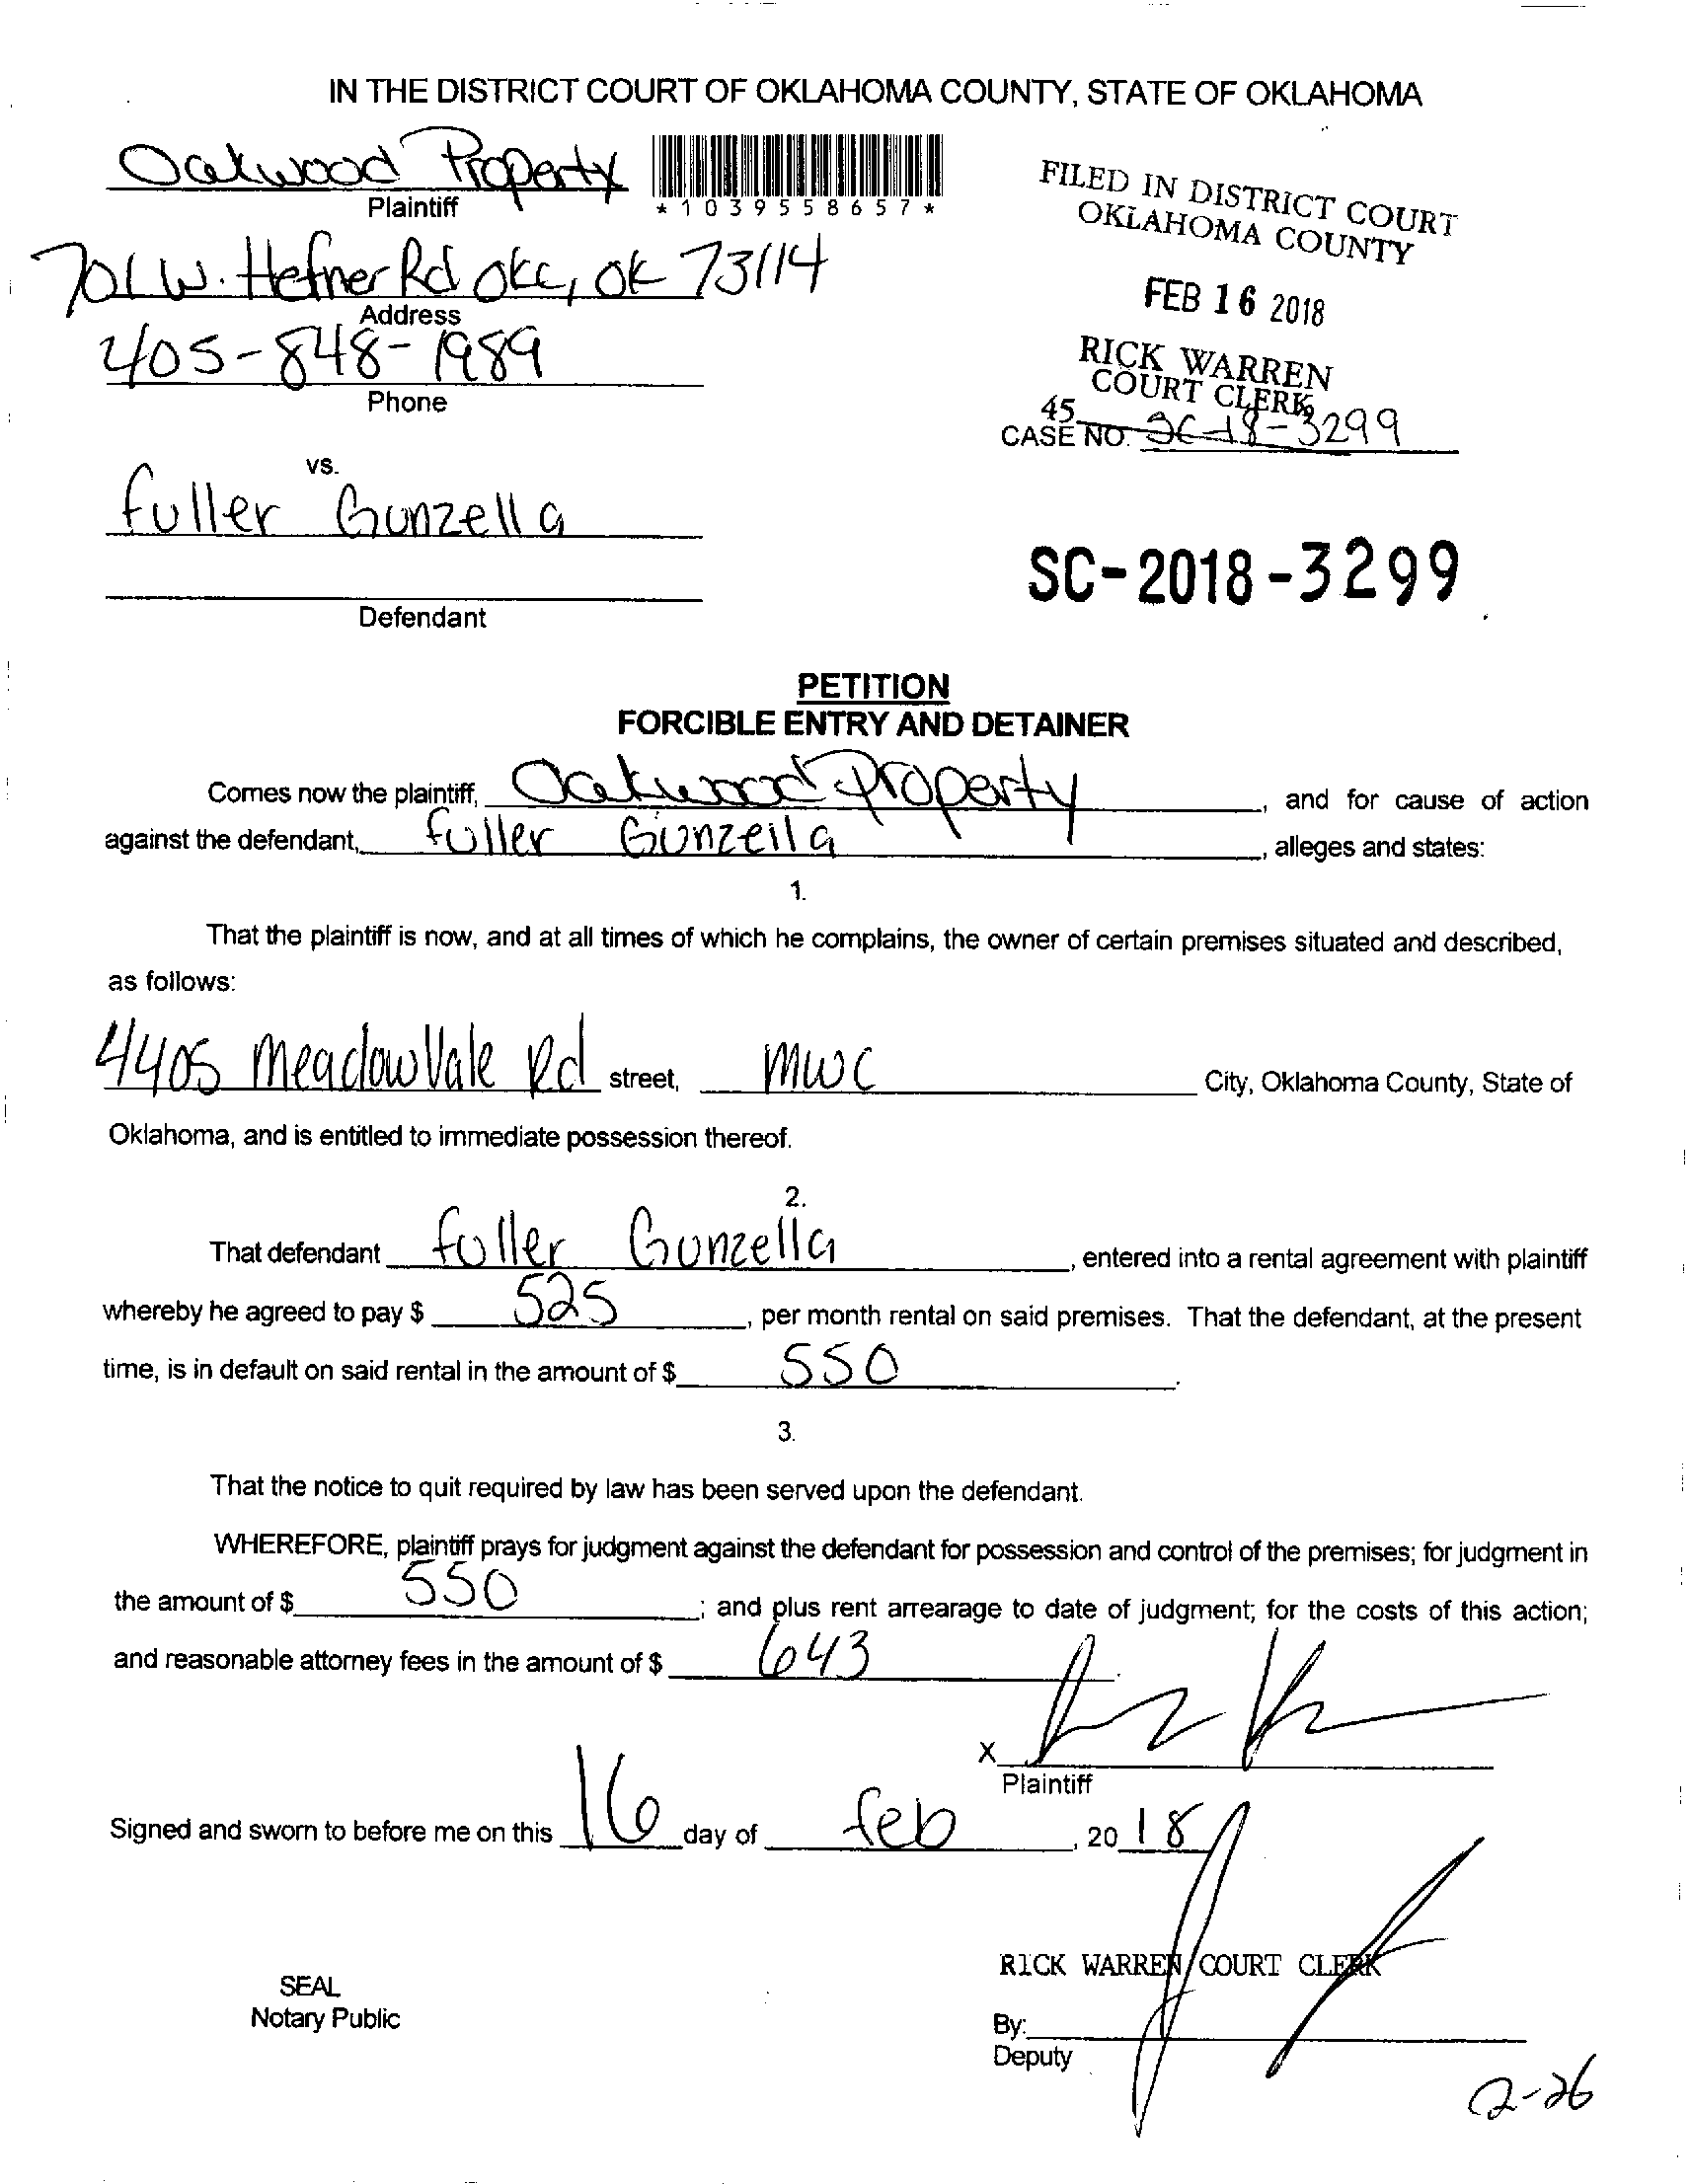 IN THE DISTRICT COURT OF OKLAHOMA COUNTY, STATE OF OKLAHOMA
Oakwood Property
Plaintiff
*1039558657*
FILED IN DISTRICT COURT
OKLAHOMA COUNTY
FEB 16 2018
RICK WARREN
COURT CLERK
45
701 W. Hefner Rd OKC, OK 73114
Address
405-848-1989
Phone
CASE NO. SC-18-3299
vs.
Fuller Gunzella
Defendant
SC-2018-3299
PETITION
FORCIBLE ENTRY AND DETAINER
Comes now the plaintiff, Oakwood Property, and for cause of action
against the defendant, Fuller Gunzella, alleges and states:
1.
That the plaintiff is now, and at all times of which he complains, the owner of certain premises situated and described,
as follows:
4405 Meadow Vale Rd street, MWC City, Oklahoma County, State of
Oklahoma, and is entitled to immediate possession thereof.
2.
That defendant Fuller Gunzella, entered into a rental agreement with plaintiff
whereby he agreed to pay $ 525, per month rental on said premises. That the defendant, at the present
time, is in default on said rental in the amount of $ 550.
3.
That the notice to quit required by law has been served upon the defendant.
WHEREFORE, plaintiff prays for judgment against the defendant for possession and control of the premises; for judgment in
the amount of $ 550; and plus rent arrearage to date of judgment; for the costs of this action;
and reasonable attorney fees in the amount of $ 643
X
Plaintiff
Signed and sworn to before me on this 16 day of feb, 20 18
RICK WARREN COURT CLERK
SEAL
Notary Public
By:
Deputy
2-26